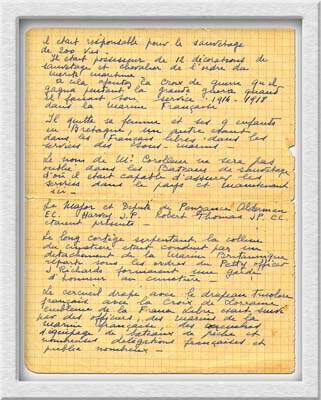 il était responsable pour le sauvetage
de 200 vies.
Il était possesseur de 12 décorations de
sauvetage et chevalier de l'ordre du
mérite maritime
A cela ajoutez la Croix de guerre qu'il
gagna pendant la grande guerre quand
il faisait son service 1914 - 1918
dans la Marine Française
Il quitte sa femme et ses 9 enfants
en Bretagne, un autre étant
dans les Français libres dans les
services des sous-marins -
Le nom de Mr Corolleur ne sera pas
oublié dans les Bateaux de sauvetage
d'où il était capable d'assurer les
services dans le pays et maintenant
sur -
Le Major et Député de Penzance Alderman
E.C. Harvey J.P. Robert Thomas J.P. C.C.
étaient présents -
Le long cortège serpentant la colline
du cimetière était conduit par un
détachement de la Marine Britannique
réparti sous les ordres du Petty Officer
J. Richards formaient une garde
d'honneur au cimetière -
Le cercueil drapé avec le drapeau tricolore
français avec la Croix de Lorraine
emblème de la France Libre était suivi
par des officiers, des marins de la
marine française, des
équipages de bateaux de pêche et
nombreuses délégations françaises et
public nombreux -